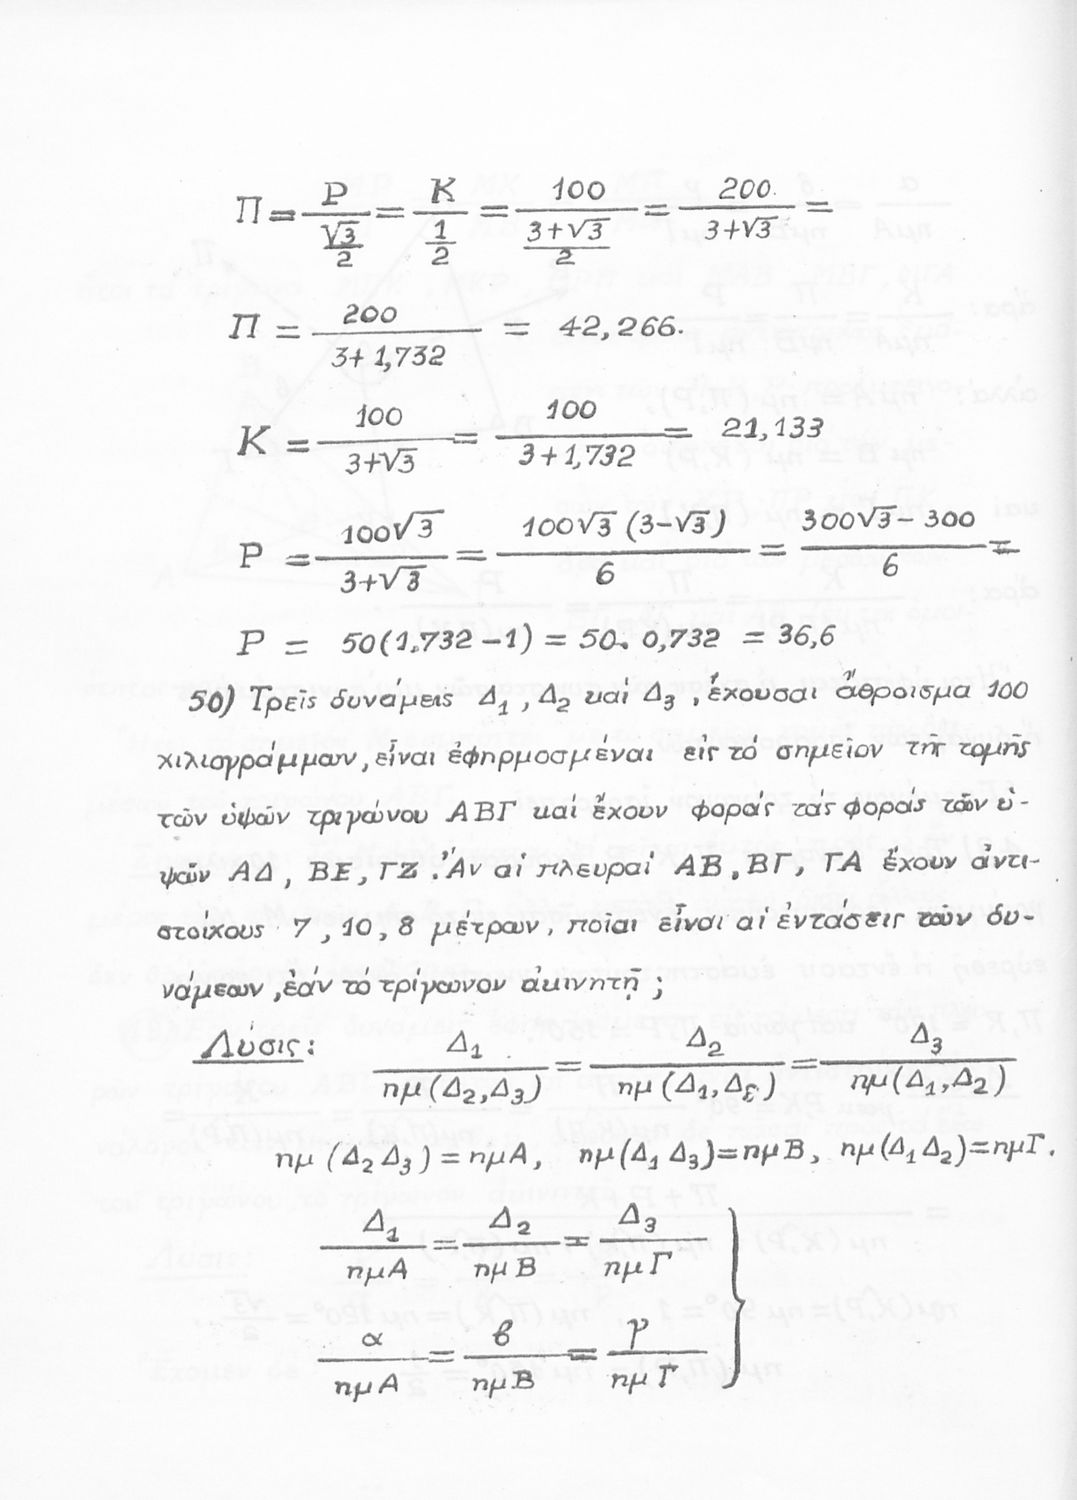 Π = Ρ/(√3/2) = Κ/(1/2) = 100/((3+√3)/2) = 200/(3+√3) =
Π = 200/(3+1,732) = 42,266.
Κ = 100/(3+√3) = 100/(3+1,732) = 21,133
Ρ = 100√3/(3+√3) = 100√3 (3-√3)/6 = (300√3 - 300)/6 =
Ρ = 50(1,732 - 1) = 50. 0,732 = 36,6
50) Τρεῖς δυνάμεις Δ₁, Δ₂ καί Δ₃, ἔχουσαι ἄθροισμα 100
χιλιογράμμων, εἶναι ἐφηρμοσμέναι εἰς τό σημεῖον τῆς τομῆς
τῶν ὑψῶν τριγώνου ΑΒΓ καί ἔχουν φοράς τάς φοράς τῶν ὑ-
ψῶν ΑΔ, ΒΕ, ΓΖ. Ἄν αἱ πλευραί ΑΒ, ΒΓ, ΓΑ ἔχουν ἀντι-
στοίχους 7, 10, 8 μέτρων, ποῖαι εἶναι αἱ ἐντάσεις τῶν δυ-
νάμεων, ἐάν τό τρίγωνον ἀκινητῇ;
Λύσις: Δ₁/ημ(Δ₂,Δ₃) = Δ₂/ημ(Δ₁,Δ₃) = Δ₃/ημ(Δ₁,Δ₂)
ημ(Δ₂ Δ₃) = ημΑ, ημ(Δ₁ Δ₃) = ημΒ, ημ(Δ₁Δ₂) = ημΓ.
Δ₁/ημΑ = Δ₂/ημΒ = Δ₃/ημΓ }
α/ημΑ = β/ημΒ = γ/ημΓ